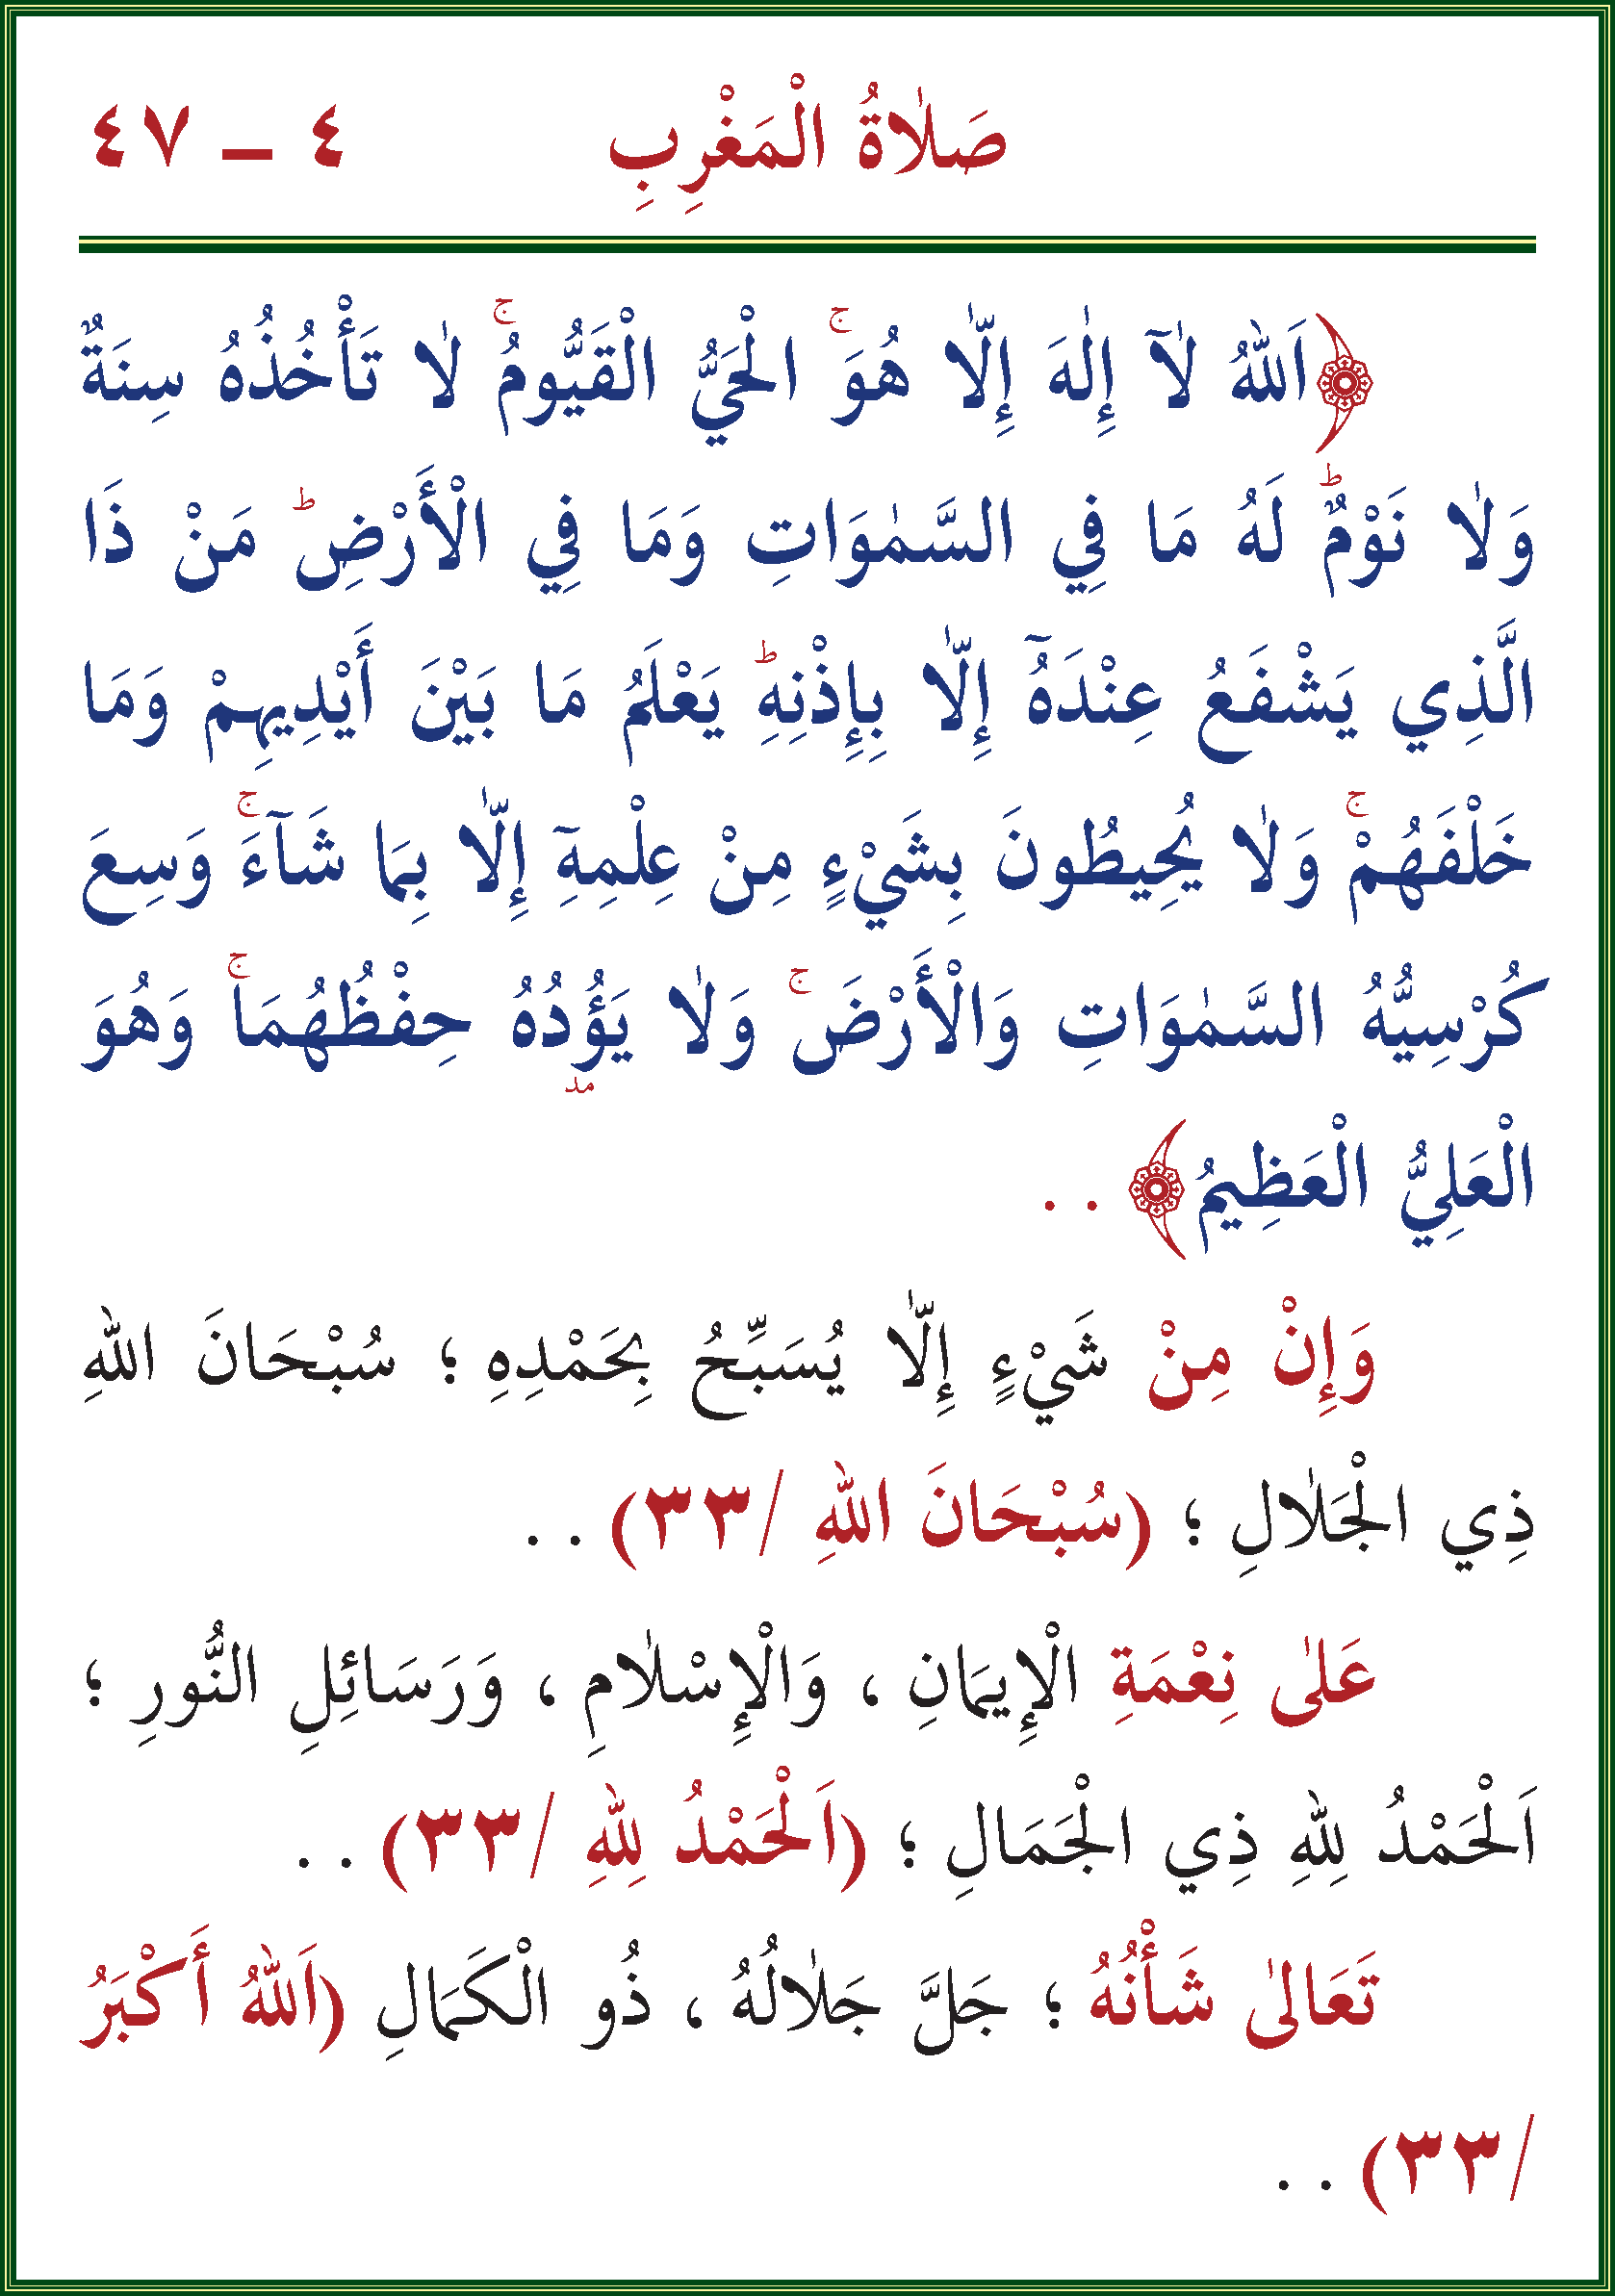 صَلٰاةُ الْمَغْرِبِ ٤ – ٤٧
﴿اَللّٰهُ لٰٓا إِلٰهَ إِلّٰا هُوَۚ الْحَيُّ الْقَيُّومُۚ لٰا تَأْخُذُهُ سِنَةٌ
وَلٰا نَوْمٌؕ لَهُ مَا فِي السَّمٰوَاتِ وَمَا فِي الْأَرْضِؕ مَنْ ذَا
الَّذِي يَشْفَعُ عِنْدَهُٓ إِلّٰا بِإِذْنِهِؕ يَعْلَمُ مَا بَيْنَ أَيْدِيهِمْ وَمَا
خَلْفَهُمْۚ وَلٰا يُحِيطُونَ بِشَيْءٍ مِنْ عِلْمِهِٓ إِلّٰا بِمَا شَآءَۚ وَسِعَ
كُرْسِيُّهُ السَّمٰوَاتِ وَالْأَرْضَۚ وَلٰا يَؤُدُهُ حِفْظُهُمَاۚ وَهُوَ
مد
الْعَلِيُّ الْعَظِيمُ﴾ . .
وَإِنْ مِنْ شَيْءٍ إِلّٰا يُسَبِّحُ بِحَمْدِهِ ؛ سُبْحَانَ اللّٰهِ
ذِي الْجَلٰالِ ؛ (سُبْحَانَ اللّٰهِ /٣٣) . .
عَلٰى نِعْمَةِ الْإِيمَانِ ، وَالْإِسْلٰامِ ، وَرَسَائِلِ النُّورِ ؛
اَلْحَمْدُ لِلّٰهِ ذِي الْجَمَالِ ؛ (اَلْحَمْدُ لِلّٰهِ /٣٣) . .
تَعَالٰى شَأْنُهُ ؛ جَلَّ جَلٰالُهُ ، ذُو الْكَمَالِ (اَللّٰهُ أَكْبَرُ
/٣٣) . .